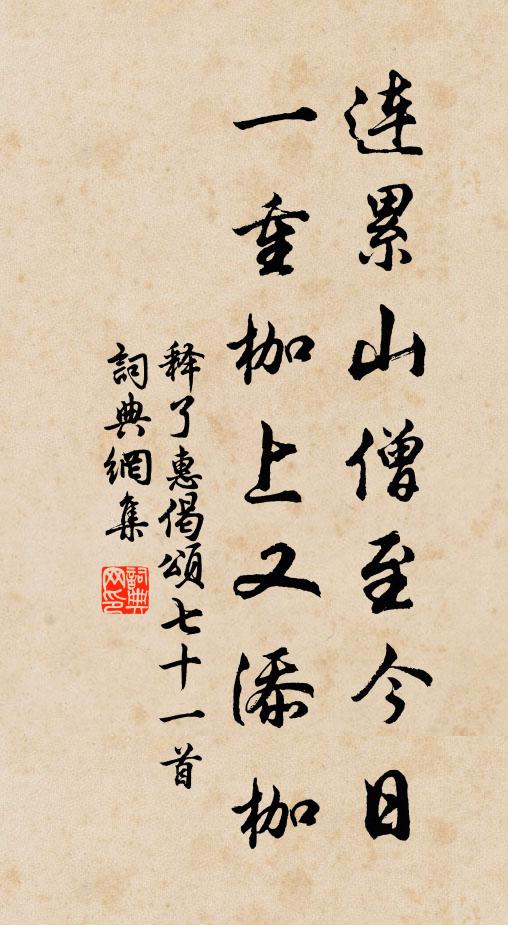 连累山僧至今日
一重枷上又添枷
释了惠偈颂七十一首
詞典網集
詞典网印